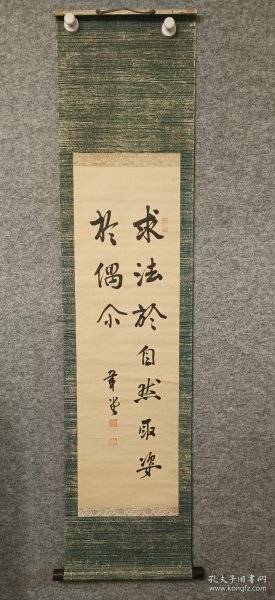 求法於自然取姿
於偶尒
孔夫子旧书网
www.kongfz.com